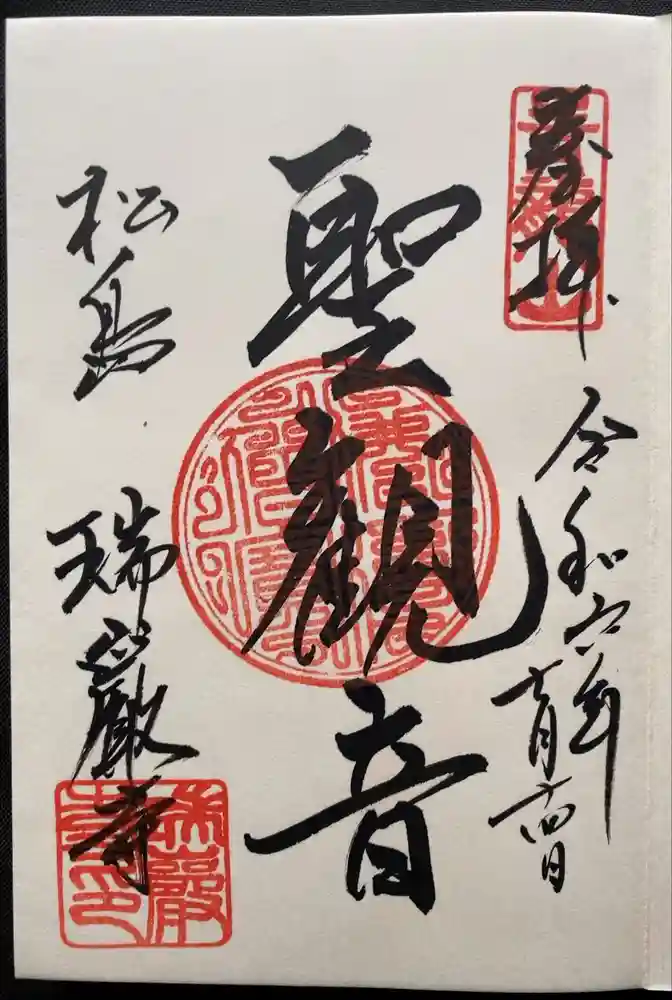 奉拝
令和六年
十月十四日
聖観音
松島
瑞巌寺